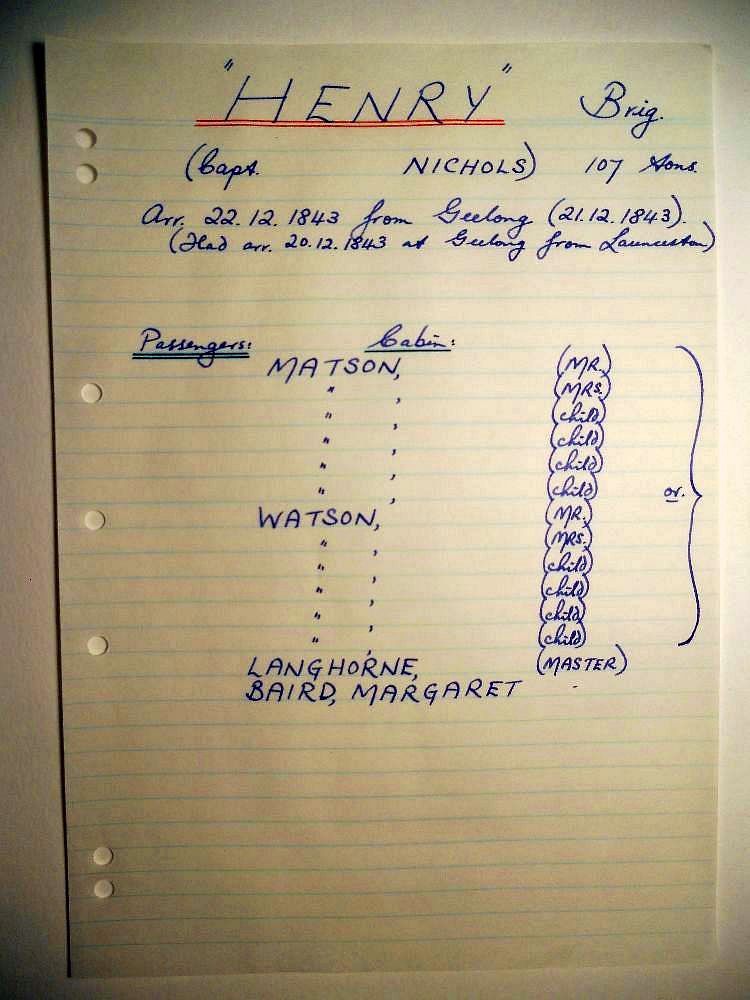 "HENRY" Brig.
(Capt. NICHOLS) 107 tons.
Arr. 22.12.1843 from Geelong (21.12.1843).
(Had arr. 20.12.1843 at Geelong from Launceston)
Passengers: Cabin:
MATSON, (MR.)
" , (MRS.)
" , (child)
" , (child)
" , (child)
" , (child) or.
WATSON, (MR.)
" , (MRS.)
" , (child)
" , (child)
" , (child)
" , (child)
LANGHORNE, (MASTER)
BAIRD, MARGARET